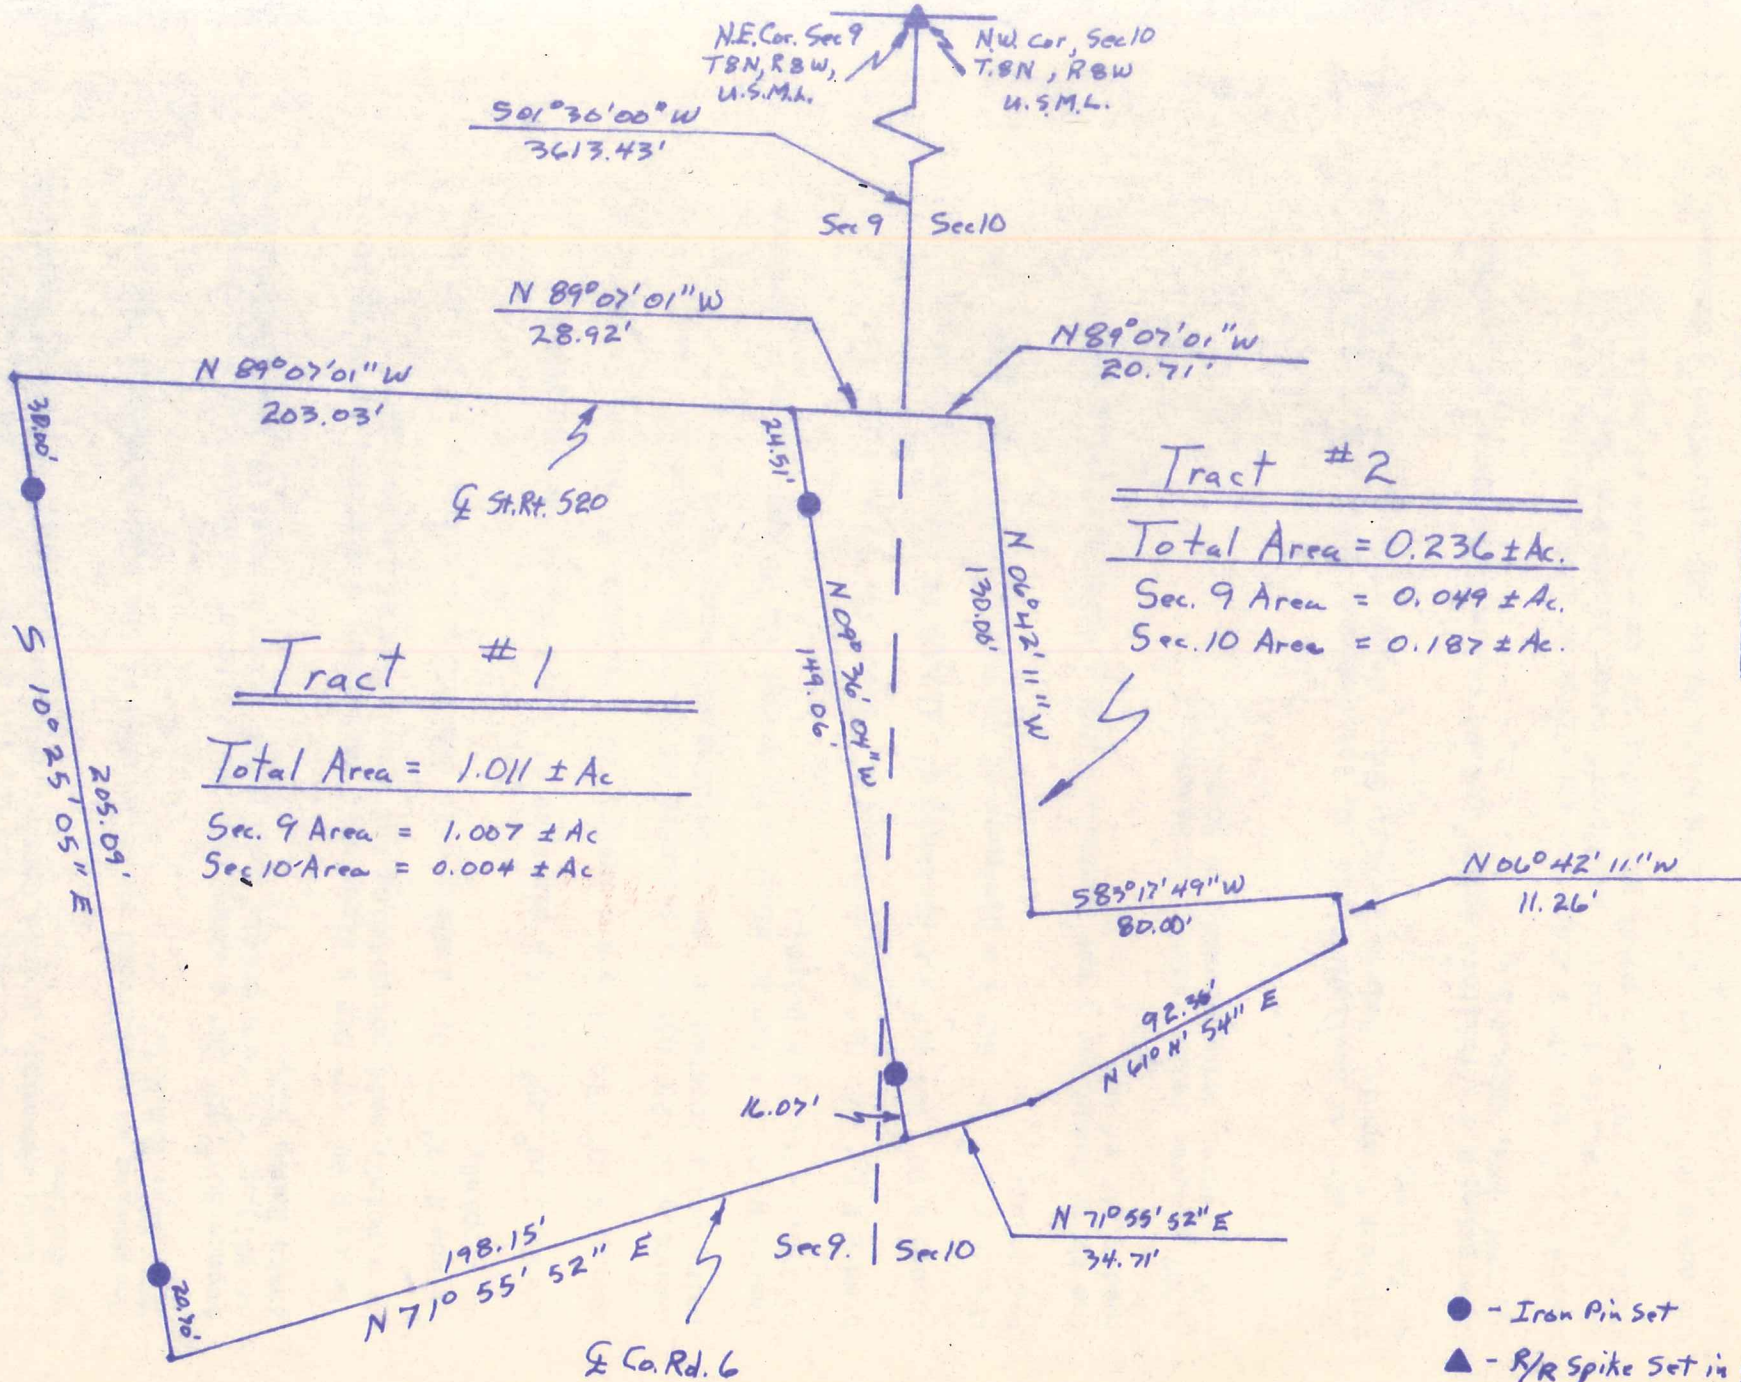 N.E. Cor. Sec 9
T8N, R8W,
U.S.M.L.
N.W. Cor, Sec 10
T.8N, R8W
U.S.M.L.
S01°30'00"W
3613.43'
Sec 9
Sec 10
N 89°07'01"W
28.92'
N 89°07'01"W
20.71'
N 89°07'01"W
203.03'
30.00'
24.51'
℄ St.Rt. 520
Tract #2
Total Area = 0.236 ± Ac.
Sec. 9 Area = 0.049 ± Ac.
Sec. 10 Area = 0.187 ± Ac.
N 06°42'11"W
130.00'
N 09°36'04"W
149.06'
Tract #1
Total Area = 1.011 ± Ac
Sec. 9 Area = 1.007 ± Ac
Sec 10 Area = 0.004 ± Ac
S 10°25'05" E
205.09'
S83°17'49"W
80.00'
N 06°42'11"W
11.26'
N 54" E
16.07'
198.15'
N 71° 55' 52" E
Sec 9. | Sec 10
N 71°55'52" E
34.71'
℄ Co. Rd. 6
- Iron Pin Set
- R/R Spike Set in